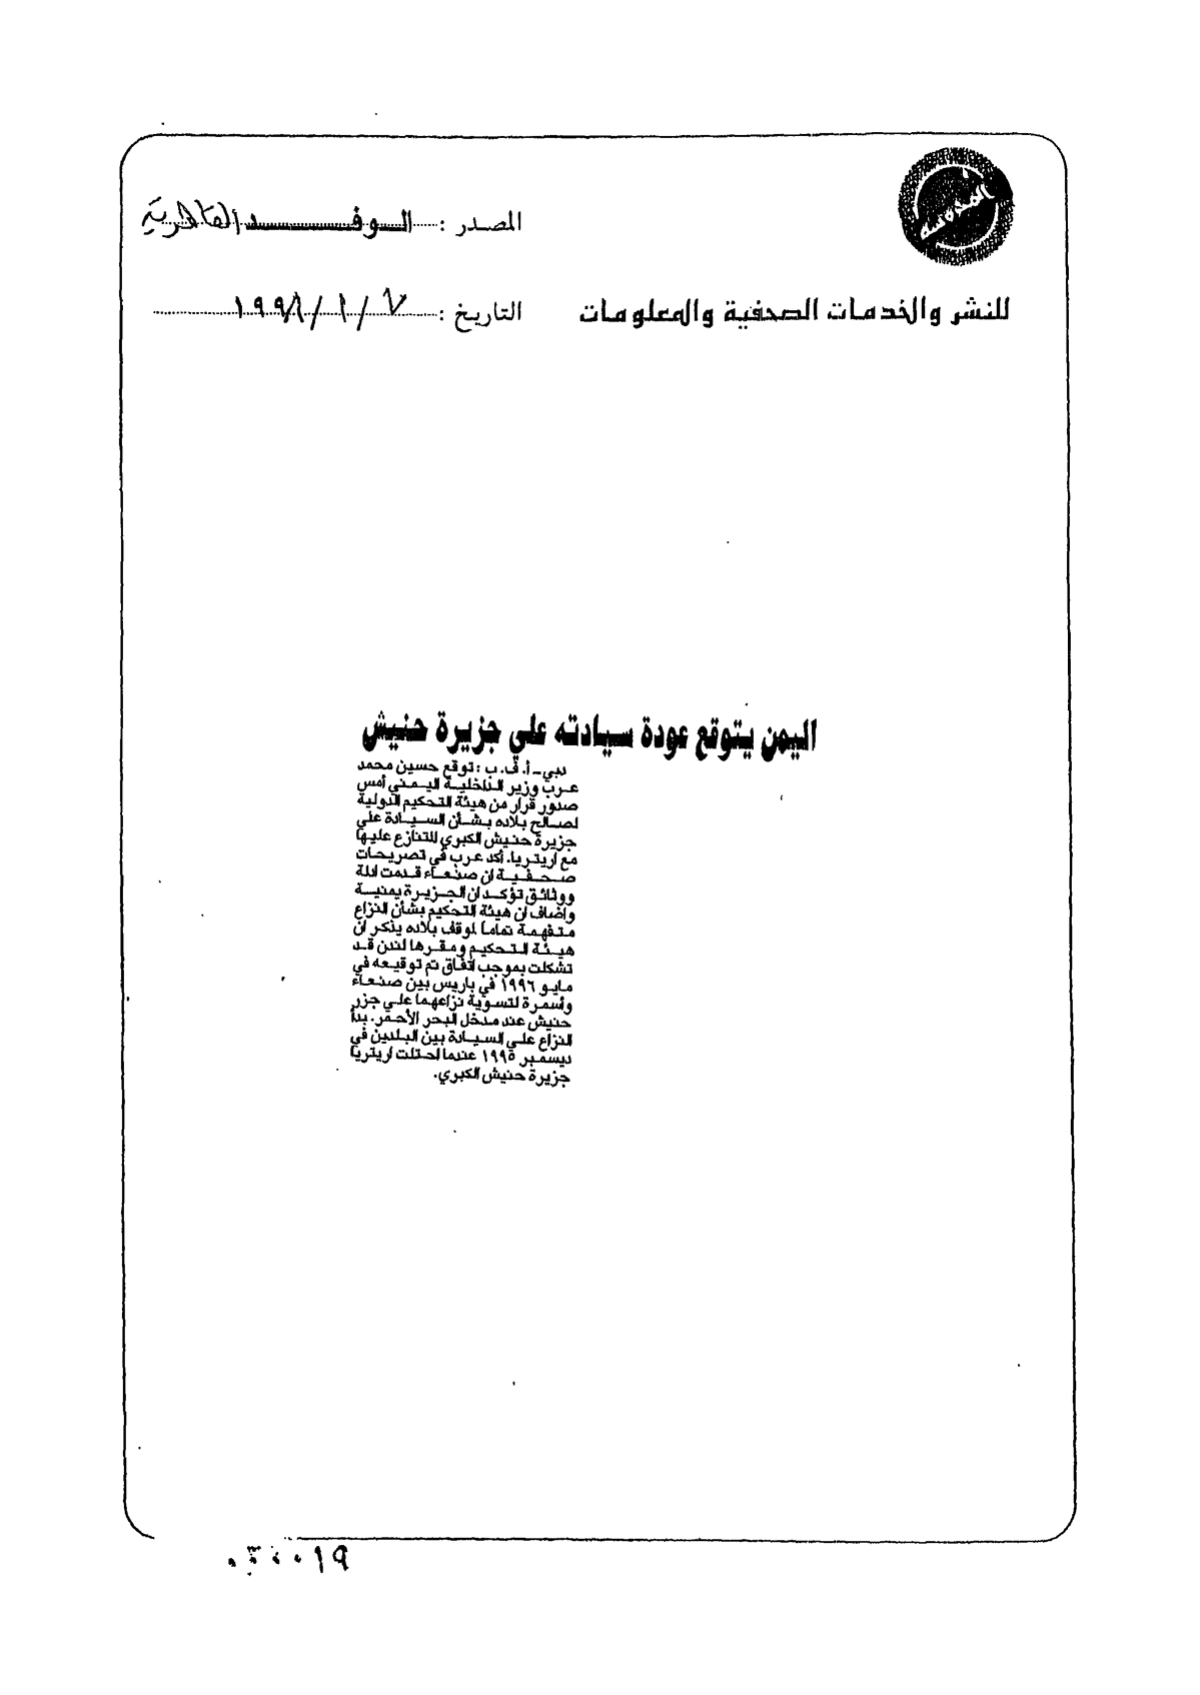 المصدر : الوفد القاهرية
للنشر والخدمات الصحفية والمعلومات
التاريخ : ٧ / ١ / ١٩٩٨
اليمن يتوقع عودة سيادته علي جزيرة حنيش
دبي ـ أ. ف. ب : توقع حسين محمد
عرب وزير الداخلية اليمني أمس
صدور قرار من هيئة التحكيم الدولية
لصالح بلاده بشأن السيادة علي
جزيرة حنيش الكبري المتنازع عليها
مع اريتريا. أكد عرب في تصريحات
صحفية ان صنعاء قدمت ادلة
ووثائق تؤكد ان الجزيرة يمنية
واضاف ان هيئة التحكيم بشأن النزاع
متفهمة تماما لموقف بلاده يذكر ان
هيئة التحكيم ومقرها لندن قد
تشكلت بموجب اتفاق تم توقيعه في
مايو ١٩٩٦ في باريس بين صنعاء
وأسمرة لتسوية نزاعهما علي جزر
حنيش عند مدخل البحر الأحمر. بدأ
النزاع علي السيادة بين البلدين في
ديسمبر ١٩٩٥ عندما احتلت اريتريا
جزيرة حنيش الكبري.